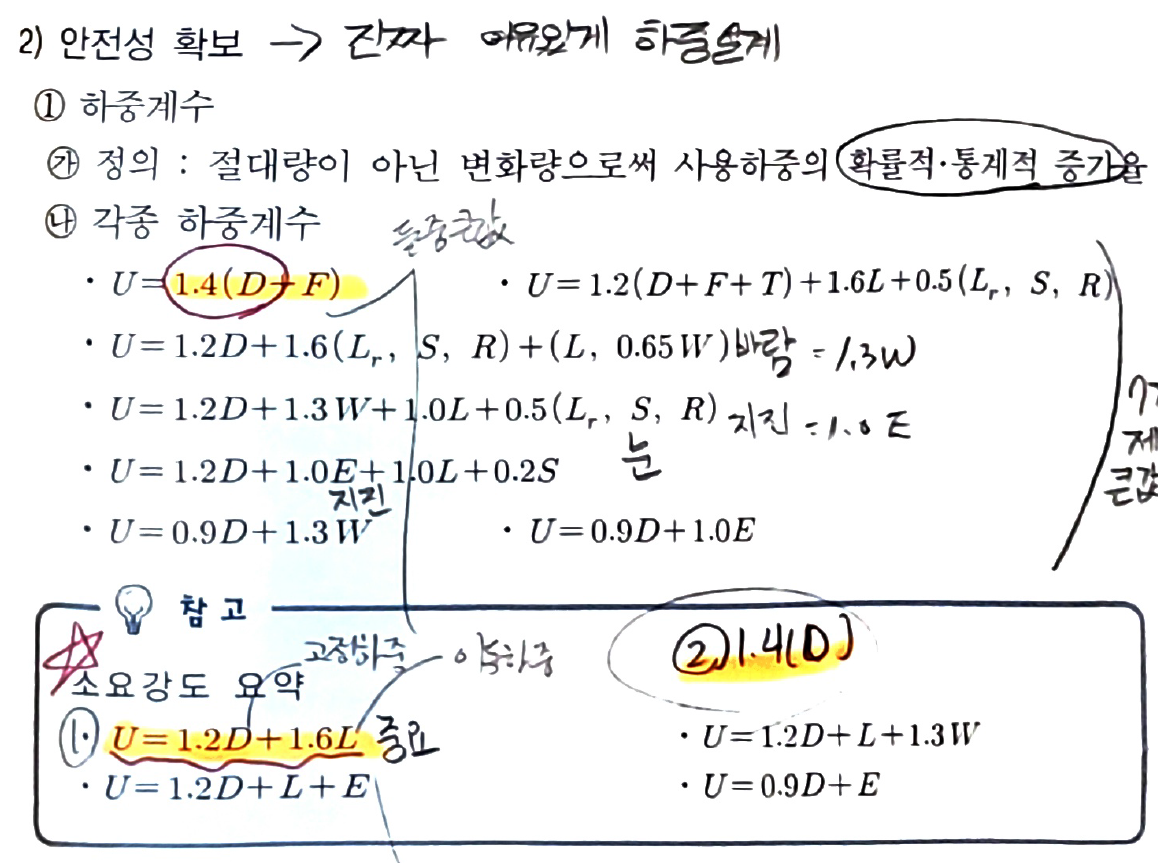 2) 안전성 확보 → 진짜 여유있게 하중설계
① 하중계수
㉮ 정의 : 절대량이 아닌 변화량으로써 사용하중의 확률적·통계적 증가율
㉯ 각종 하중계수 둘중큰값
· U=1.4(D+F) · U=1.2(D+F+T)+1.6L+0.5(Lr, S, R)
· U=1.2D+1.6(Lr, S, R)+(L, 0.65W) 바람 = 1.3W
· U=1.2D+1.3W+1.0L+0.5(Lr, S, R) 지진 = 1.0E
눈
· U=1.2D+1.0E+1.0L+0.2S
지진
제
큰값
· U=0.9D+1.3W · U=0.9D+1.0E
참고
고정하중 이동하중 ② 1.4(D)
소요강도 요약
1. U=1.2D+1.6L 중요 · U=1.2D+L+1.3W
· U=1.2D+L+E · U=0.9D+E